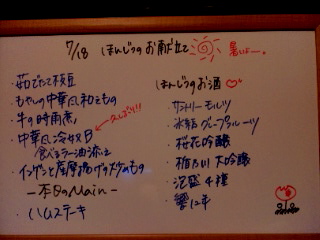 7/18 ほんじつのお献立て 暑いよー。
・茹でたて枝豆
・もやしの中華風和えもの
・牛の時雨煮
・中華風冷奴
食べるラー油添え
・インゲンと薩摩揚げの炒めもの
－本日のMain－
・ハムステーキ
ほんじつのお酒
・サントリーモルツ
・氷結グレープフルーツ
・桜花吟醸
・大吟醸
・泡盛4種
・響12年